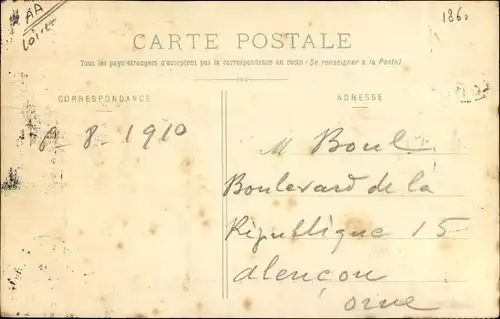 AA
Loiret
186
CARTE POSTALE
Tous les pays étrangers n'acceptent pas la correspondance au recto (Se renseigner à la Poste)
CORRESPONDANCE
ADRESSE
8 1910
M Boul
Boulevard de la
République 15
Alençon
Orne